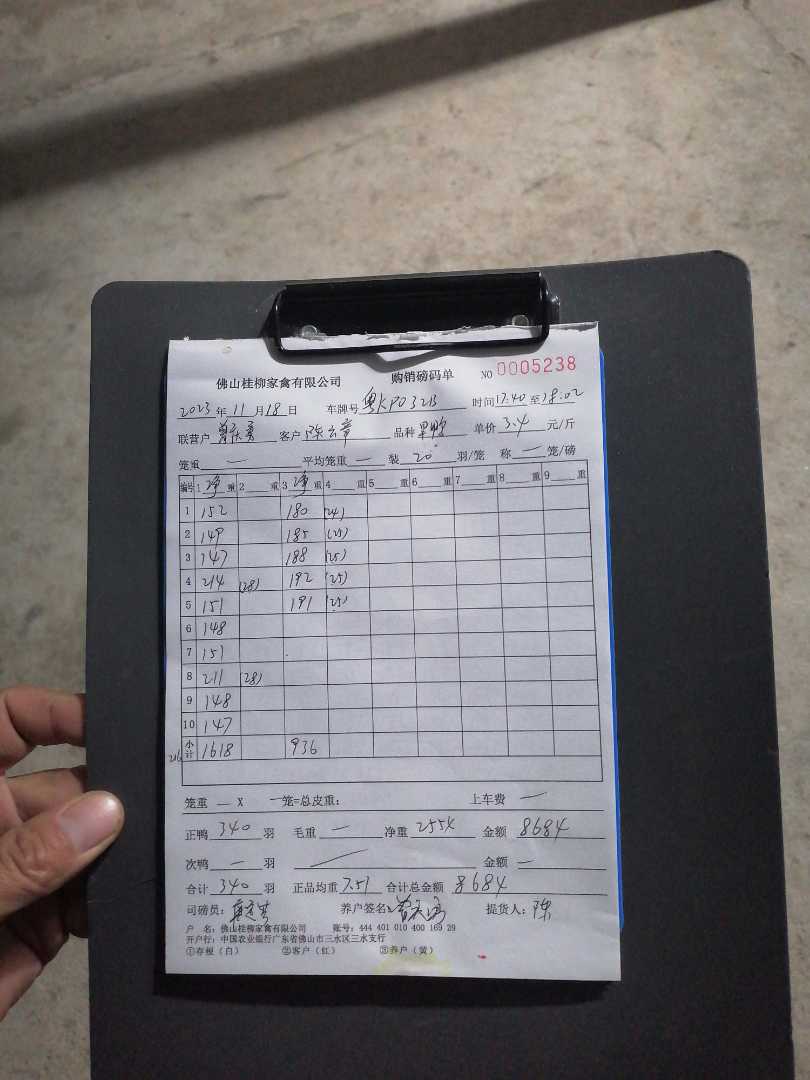 佛山桂柳家禽有限公司 购销磅码单 NO 0005238
2023年11月18日 车牌号 粤KP032B 时间17:40至18:02
联营户 客户 陈云章 品种 单价 3.4 元/斤
笼重 — 平均笼重 — 装 20 羽/笼 称 — 笼/磅
编号 1 净 重 2 重 3 净 重 4 重 5 重 6 重 7 重 8 重 9 重
1 152 180 (24)
2 149 185 (25)
3 147 188 (25)
4 214 (28) 192 (25)
5 151 191 (25)
6 148
7 151
8 211 (28)
9 148
10 147
216 小计 1618 936
笼重 — X 一笼=总皮重: 上车费 —
正鸭 340 羽 毛重 — 净重 2554 金额 8684
次鸭 — 羽 金额 —
合计 340 羽 正品均重 7.51 合计总金额 8684
司磅员: 养户签名: 提货人: 陈
户 名: 佛山桂柳家禽有限公司 账号: 444 401 010 400 169 29
开户行: 中国农业银行广东省佛山市三水区三水支行
①存根(白) ②客户(红) ③养户(黄)